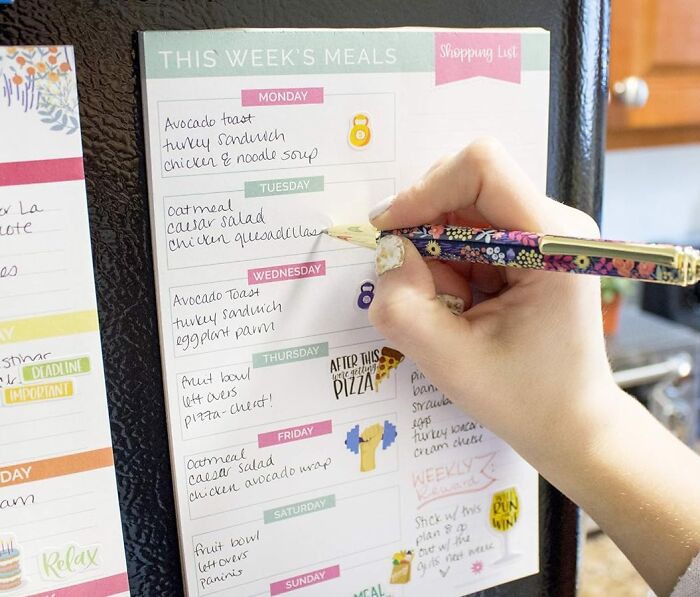 THIS WEEK'S MEALS
Shopping List
MONDAY
Avocado toast
turkey sandwich
chicken & noodle soup
TUESDAY
oatmeal
caesar salad
chicken quesadillas
WEDNESDAY
Avocado Toast
turkey sandwich
eggplant parm
THURSDAY
fruit bowl
leftovers
pizza-cheat!
AFTER THIS
we're getting
PIZZA
FRIDAY
Oatmeal
caesar salad
chicken avocado wrap
SATURDAY
fruit bowl
leftovers
paninis
SUNDAY
MEAL
eggs
turkey bacon
cream cheese
WEEKLY
Reward
Stick w/ this
plan & go
out w/ the
girls next week
WILL
RUN
WINE
or La
DEADLINE
IMPORTANT
DAY
am
Relax